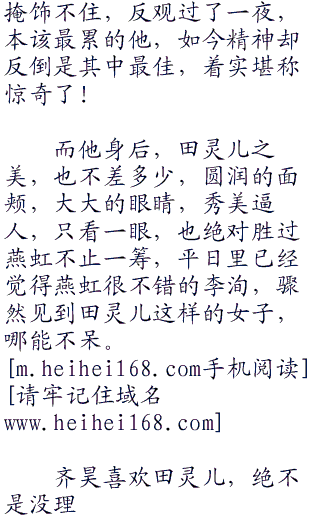 掩饰不住，反观过了一夜，
本该最累的他，如今精神却
反倒是其中最佳，着实堪称
惊奇了！
而他身后，田灵儿之
美，也不差多少，圆润的面
颊，大大的眼睛，秀美逼
人，只看一眼，也绝对胜过
燕虹不止一筹，平日里已经
觉得燕虹很不错的李洵，骤
然见到田灵儿这样的女子，
哪能不呆。
[m.heihei168.com手机阅读]
[请牢记住域名
www.heihei168.com]
齐昊喜欢田灵儿，绝不
是没理